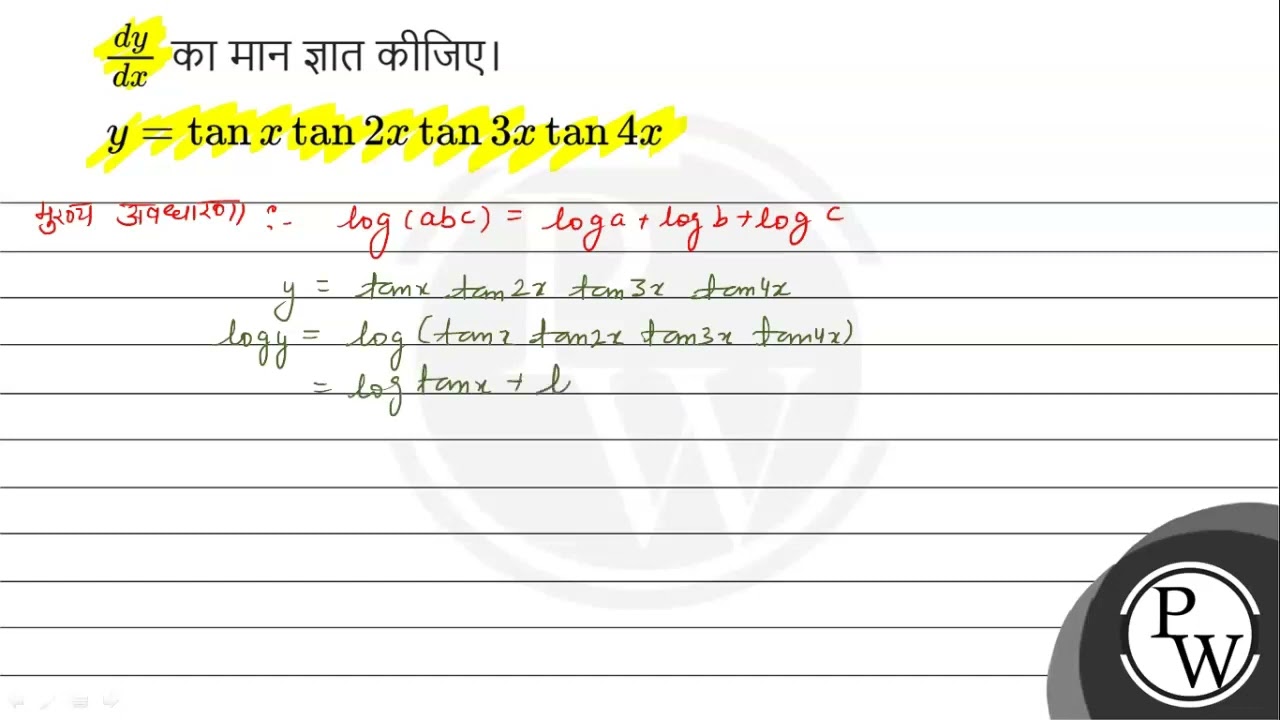 dy/dx का मान ज्ञात कीजिए।
y = tan x tan 2x tan 3x tan 4x
मुख्य अवधारणा :- log (abc) = log a + log b + log c
y = tanx tan2x tan3x tan4x
logy = log (tanx tan2x tan3x tan4x)
= log tanx + l
PW
PW